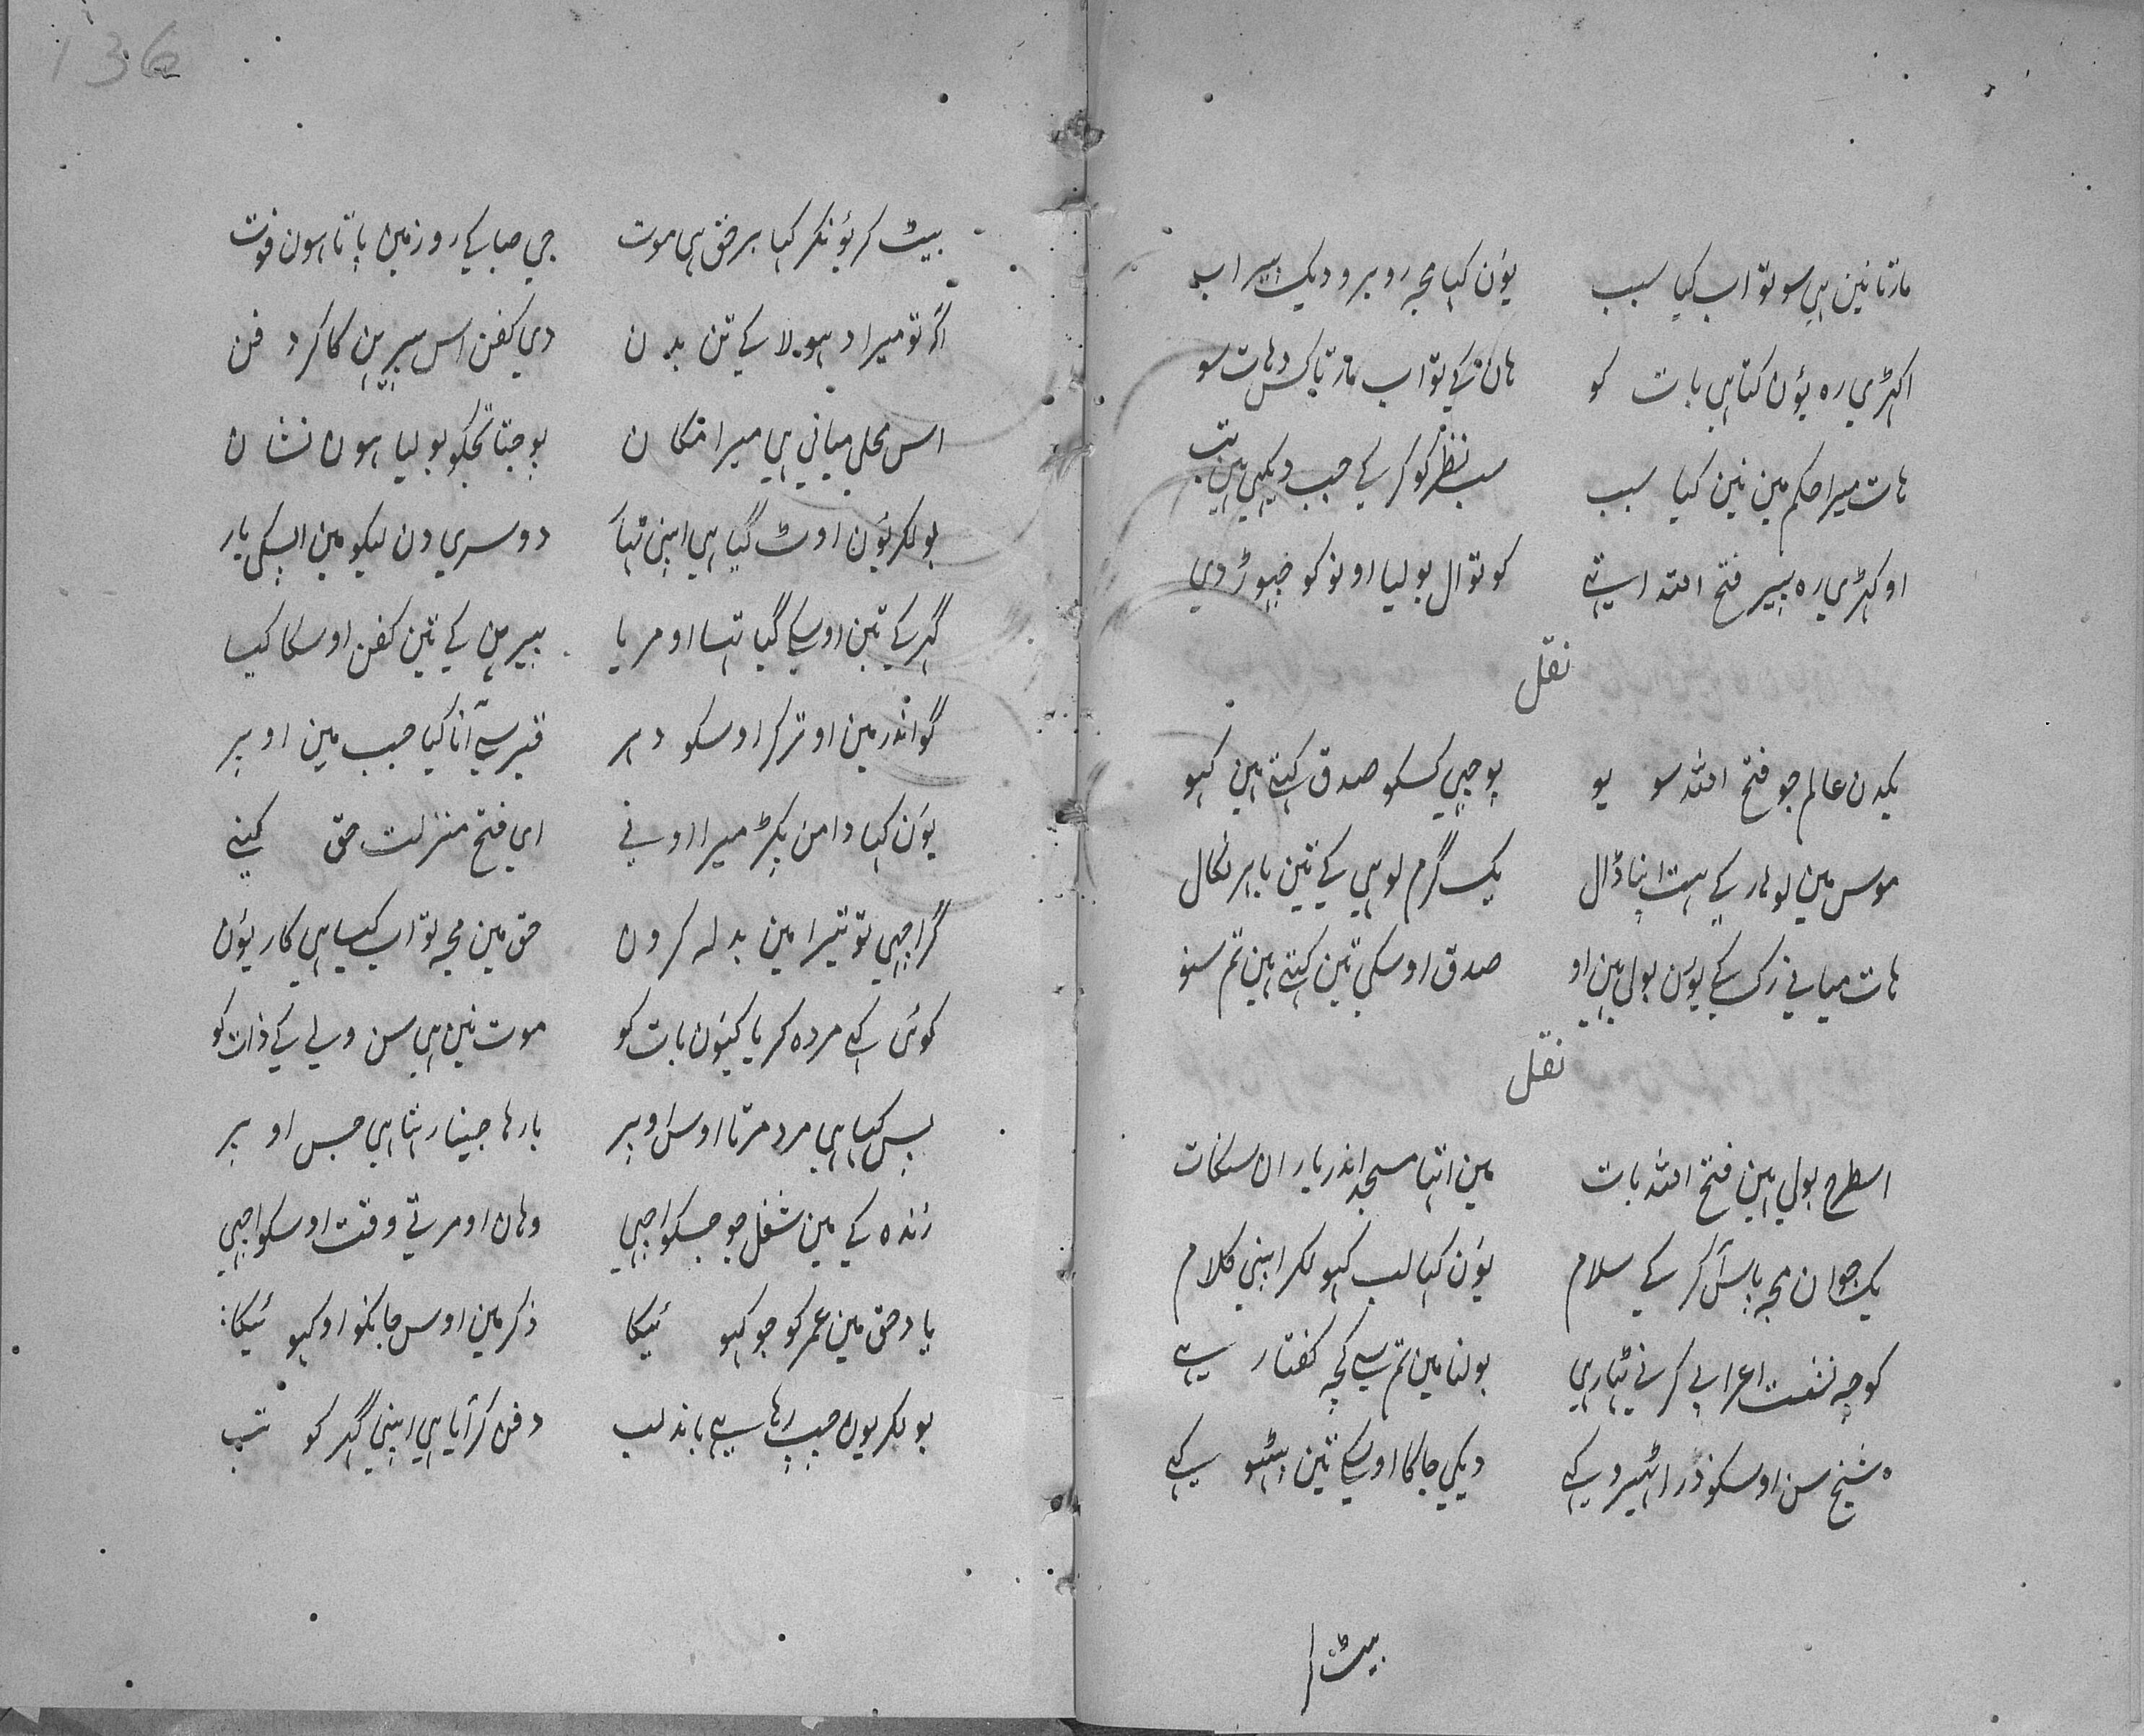 مارتا نین ہی سو تو اب کیا سبب یون کہا مجہ روبرو دیک پیر اب
اکہڑی رہ یون کتا ہی بات کو ہان کے تو اب مارتا کس دہات سو
ہات میرا حکم مین نین کیا سبب سب نظر کو کر کے جب دیکہی ہین تب
او کہڑی رہ پیر فتح اللہ اتہے کوتوال بولیا اونو کو چہوڑ دی
نقل
یکدن عالم جو فتح اللہ سو یو پوچہی کسکو صدق کہتے ہین کہو
موس مین لوہار کے ہت اپنا ڈال یک گرم لوہی کے تین باہر نکال
ہات میانے رک کے یون بولی ہین او صدق اوسکی تین کہتے ہین تم سنو
نقل
اسطرح بولی ہین فتح اللہ بات مین اتہا مسجد اندر یاران سنگات
یک جوان مجہ پاس آ کر کے سلام یون کہا لب کہولکر اپنی کلام
کوچہ نشفت اعرابی کرنے تیار ہی بولنا مین تم سے کچہ گفتار ہے
شیخ سن اوسکو ذرا ٹہیرو کہے دیکی جاگا اوسکے تین بیٹہو کہے
بیٹ کر
136
بیٹ کر یونکر کہا برحق ہی موت جی صبا کے روز مین پاتا ہون فوت
اگر تو میرا دہولا کے تن بدن دی کفن اس پیرہن کا کر دفن
اس محلی میانی ہی میرا مکان بوجتا تجکو بولیا ہون نشان
بولکر یون اوٹ گیا ہی اپنی ٹہار دوسری دن لیکو مین اپسکی یار
گہر کے تین اوسکے گیا تہا او مریا پیرہن کے تین کفن اوسکا کیا
گور اندر مین اوتر کر اوسکو دہر قبر سے آنا کیا جب مین اوپر
یون کہا دامن پکڑ میرا اونے ای فتح منزلت حق کینے
گر اچہی تو تیرا مین بدلہ کرون حق مین مجہ تو اب کیا ہی کار یون
کوئی کہے مردہ کریا کیون بات کو موت نین ہی سن ولی کے ذات کو
پس کہا ہی مرد مرتا اوس اوپر بارہا جیتا رہتا ہی جس اوپر
زندہ کے مین شغل جو جسکو اچہی وہان او مرتے وقت اوسکو اچہی
یاد حق مین عمر کو جو کہویگا ذکر مین اوس جانکو او کہویگا
بولکر یون چپ رہا ہے باند لب دفن کر آیا ہی اپنی گہر کو تب